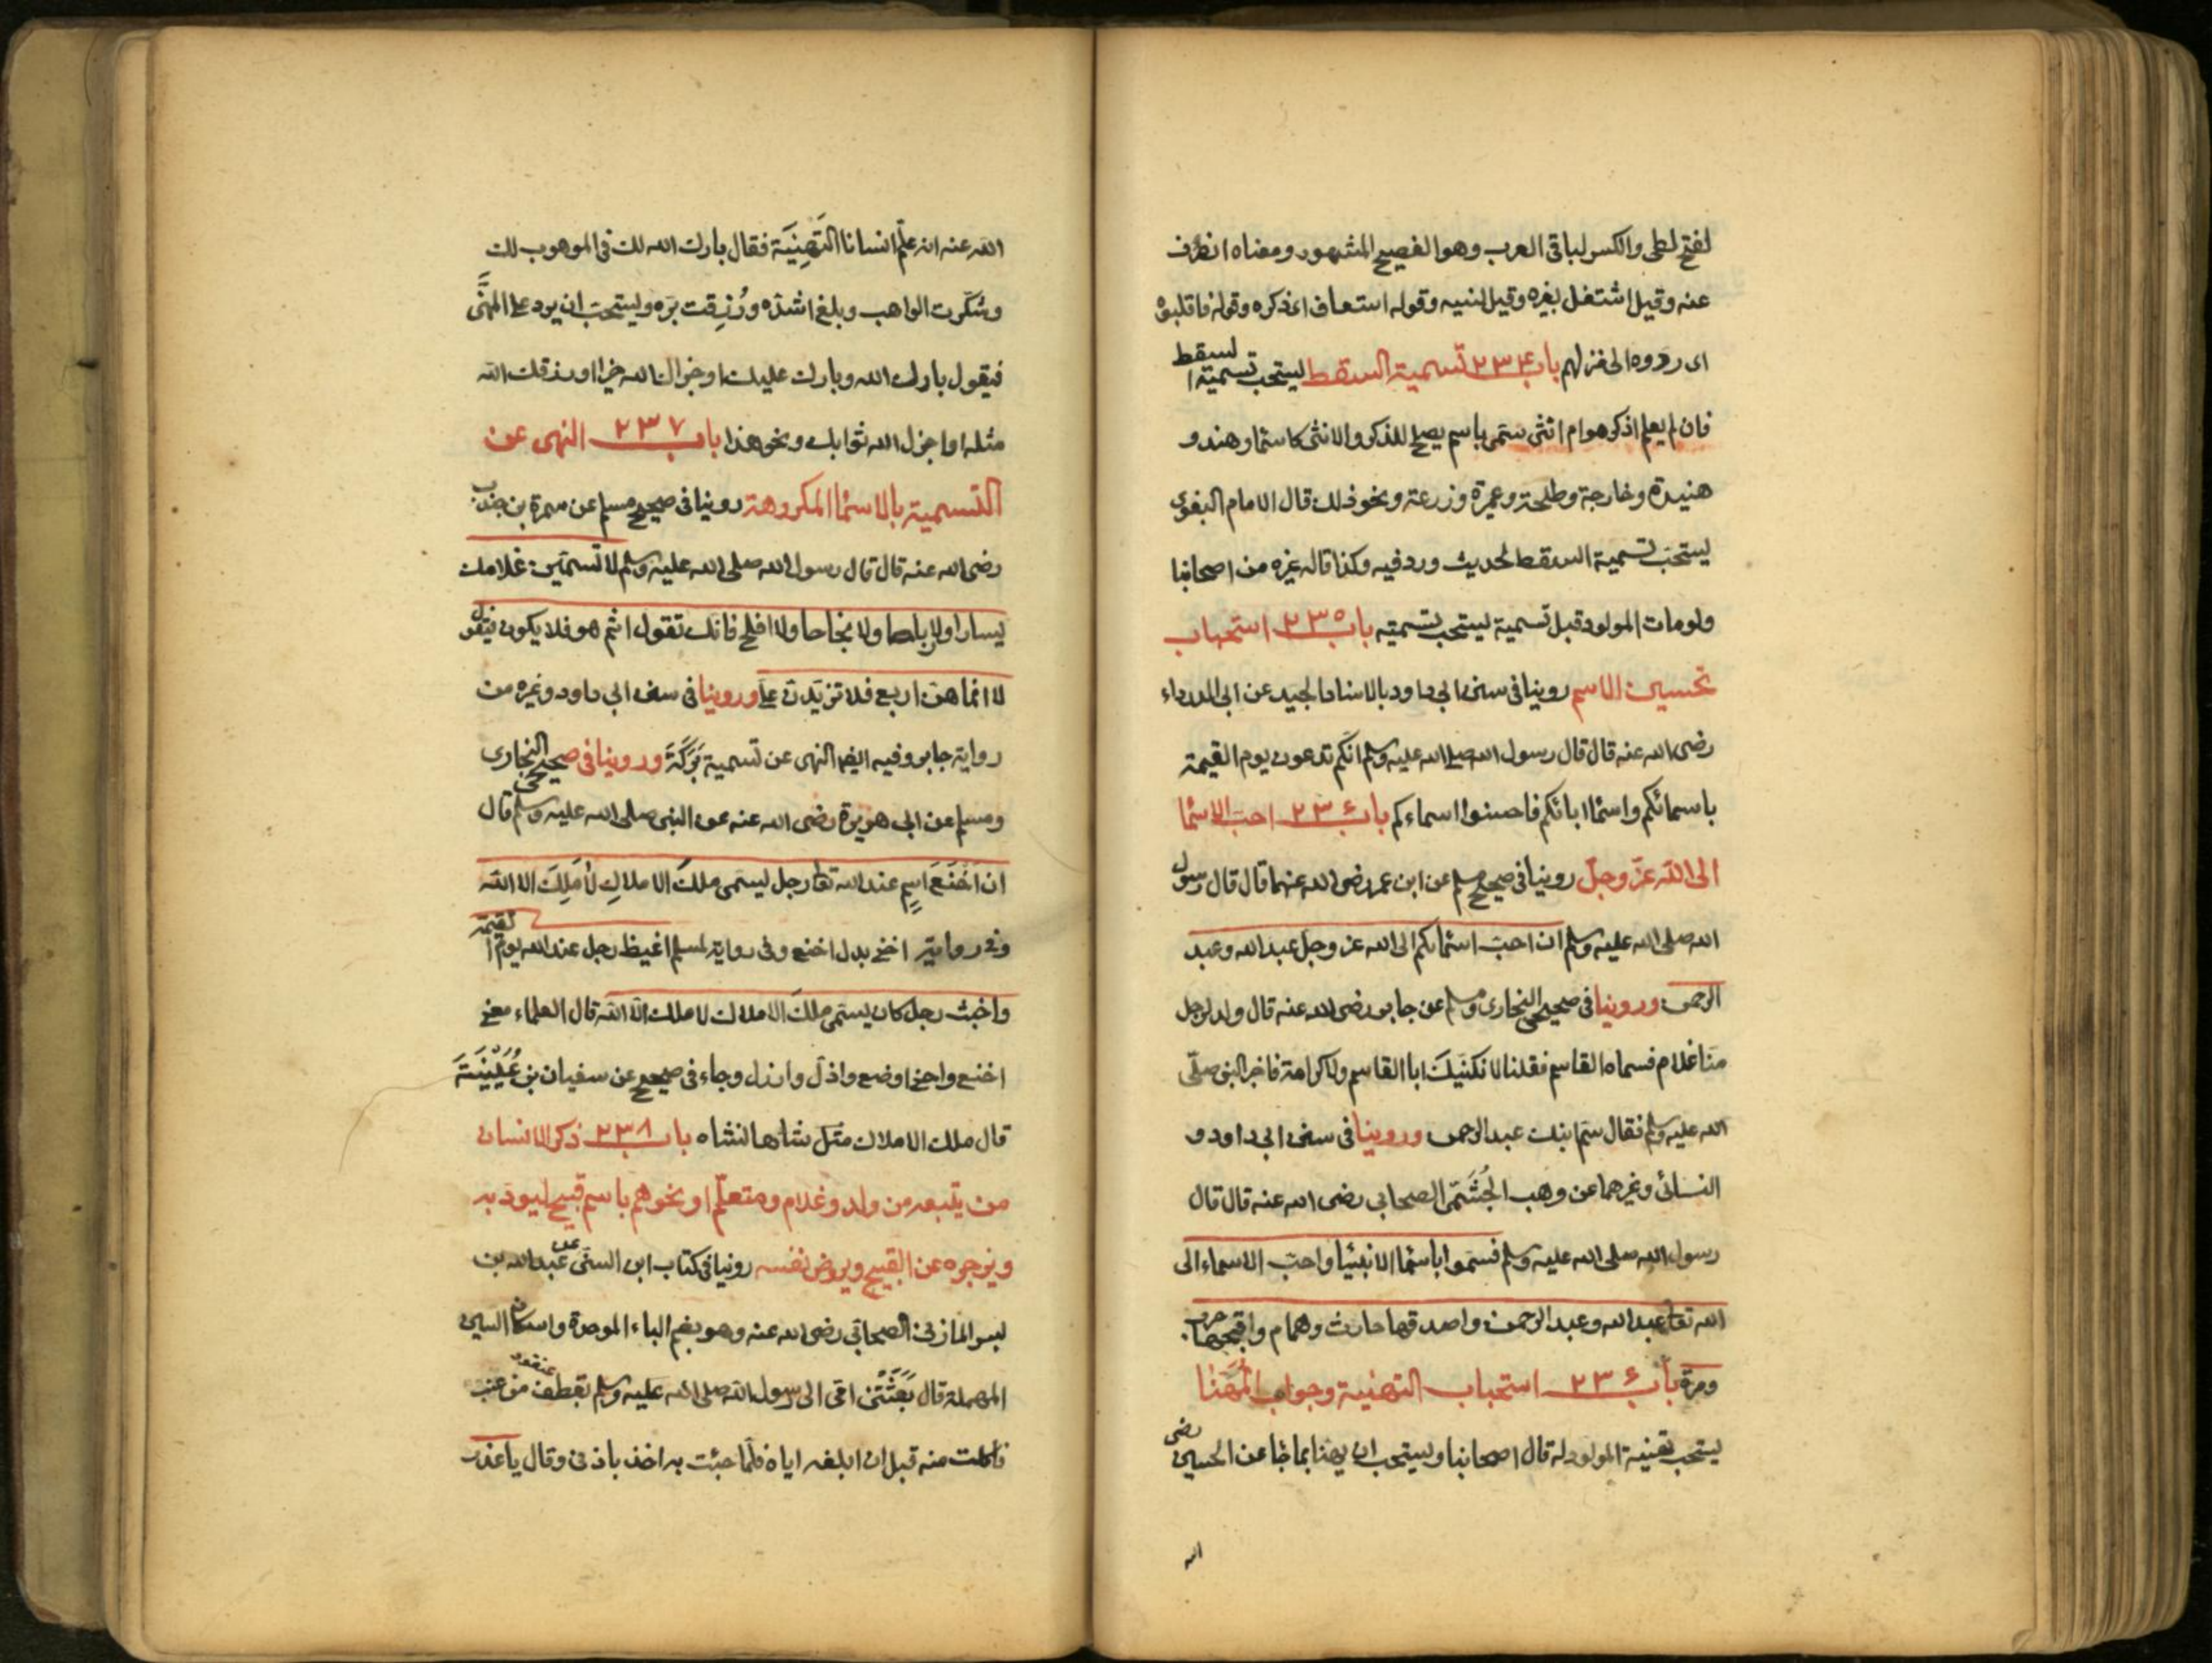 لفتح لطى والكسر لباقى العرب وهو الفصيح المشهور ومعناه انصرف
عنه وقيل اشتغل بغيره وقيل نسيه وقوله استفاق اى ذكره وقوله فاقلبوه
اى ردوه الى منزلهم باب ٢٣٤ تسمية السقط يستحب تسمية السقط
فان لم يعلم اذكر هو ام انثى سمى باسم يصلح للذكر والانثى كاسما وهند و
هنيدة وخارجة وطلحة وعميرة وزرعة ونحو ذلك قال الامام البغوى
يستحب تسمية السقط لحديث ورد فيه وكذا قاله غيره من اصحابنا
ولو مات المولود قبل تسمية يستحب تسميته باب ٢٣٥ استحباب
تحسين الاسم روينا فى سنن ابى داود بالاسناد الجيد عن ابى الدرداء
رضى الله عنه قال قال رسول الله صلى الله عليه وسلم انكم تدعون يوم القيمة
باسمائكم واسما ابائكم فاحسنوا اسماءكم باب ٢٣٦ احب الاسما
الى الله عز وجل روينا فى صحيح مسلم عن ابن عمر رضى الله عنهما قال قال رسول
الله صلى الله عليه وسلم ان احب اسمائكم الى الله عز وجل عبد الله وعبد
الرحمن وروينا فى صحيحى البخارى ومسلم عن جابر رضى الله عنه قال ولد لرجل
منا غلام فسماه القاسم فقلنا لا نكنيك ابا القاسم ولا كرامة فاخبر النبى صلى
الله عليه وسلم فقال سم ابنك عبد الرحمن وروينا فى سنن ابى داود و
النسائى وغيرهما عن وهب الجشمى الصحابى رضى الله عنه قال قال
رسول الله صلى الله عليه وسلم تسموا باسما الانبيا واحب الاسماء الى
الله تعا عبد الله وعبد الرحمن واصدقها حارث وهمام واقبحها حرب
ومرة باب ٢٣٦ استحباب التهنية وجواب المهنا
يستحب تهنية المولود له قال اصحابنا ويستحب ان يهنا بما جا عن الحسين رضى
الله
الله عنه انه علم انسانا التهنية فقال بارك الله لك فى الموهوب لك
وشكرت الواهب وبلغ اشده ورزقت بره ويستحب ان يرد على المهنى
فيقول بارك الله وبارك عليك او جزاك الله خيرا او رزقك الله
مثله او اجزل الله ثوابك ونحو هذا باب ٢٣٧ النهى عن
التسمية بالاسما المكروهة روينا فى صحيح مسلم عن سمرة بن جندب
رضى الله عنه قال قال رسول الله صلى الله عليه وسلم لا تسمين غلامك
يسارا ولا رباحا ولا نجاحا ولا افلح فانك تقول اثم هو فلا يكون فيقول
لا انما هن اربع فلا تزيدن على وروينا فى سنن ابى داود وغيره من
رواية جابر وفيه ايضا النهى عن تسمية بركة وروينا فى صحيحى البخارى
ومسلم عن ابى هريرة رضى الله عنه عن النبى صلى الله عليه وسلم قال
ان اخنع اسم عند الله تعا رجل يسمى ملك الاملاك لا ملك الا الله
وفى رواية اخنى بدل اخنع وفى رواية لمسلم اغيظ رجل عند الله يوم القيمة
واخبث رجل كان يسمى ملك الاملاك لا ملك الا الله قال العلماء معنى
اخنع واخنى اوضع واذل وارذل وجاء فى صحيح عن سفيان بن عيينة
قال ملك الاملاك مثل شاهانشاه باب ٢٣٨ ذكر الانسان
من يتبعه من ولد وغلام ومتعلم او نحوهم باسم قبيح ليودبه
ويزجره عن القبيح ويروض نفسه روينا فى كتاب ابن السنى عن عبد الله بن
بسر المازنى الصحابى رضى الله عنه وهو بضم الباء الموحدة واسكان السين
المهملة قال بعثتنى امى الى رسول الله صلى الله عليه وسلم بقطف من عنب
فاكلت منه قبل ان ابلغه اياه فلما جئت به اخذ باذنى وقال يا غدر